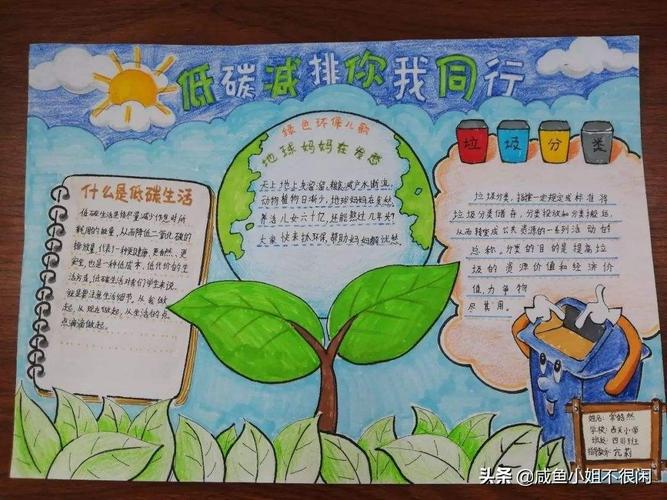 低碳减排你我同行
什么是低碳生活
低碳生活是指尽量减少作息时所
耗用的能量,从而降低二氧化碳的
排放量,代表了一种更健康、更自然、更
安全,也是一种低成本、低代价的生
活方式,低碳生活对我们学生来说,
就是要注意生活细节,从我做
起,从现在做起,从生活的点
点滴滴做起。
绿色环保儿歌
地球妈妈在发愁
天上地上走溜溜,
动物植物日渐少,地球妈妈在发愁,
养活儿女六十亿,还能熬过几年头?
大家快来抓环保,帮助妈妈解忧愁
垃圾分类
垃圾分类,指按一定规定或标准将
垃圾分类储存,分类投放和分类搬运,
从而转变成公共资源的一系列活动的
总称。分类的目的是提高垃
圾的资源价值和经济价
值,力争物
尽其用。
姓名:
学校:西关小学
班级:四(1)班
头条@咸鱼小姐不很闲